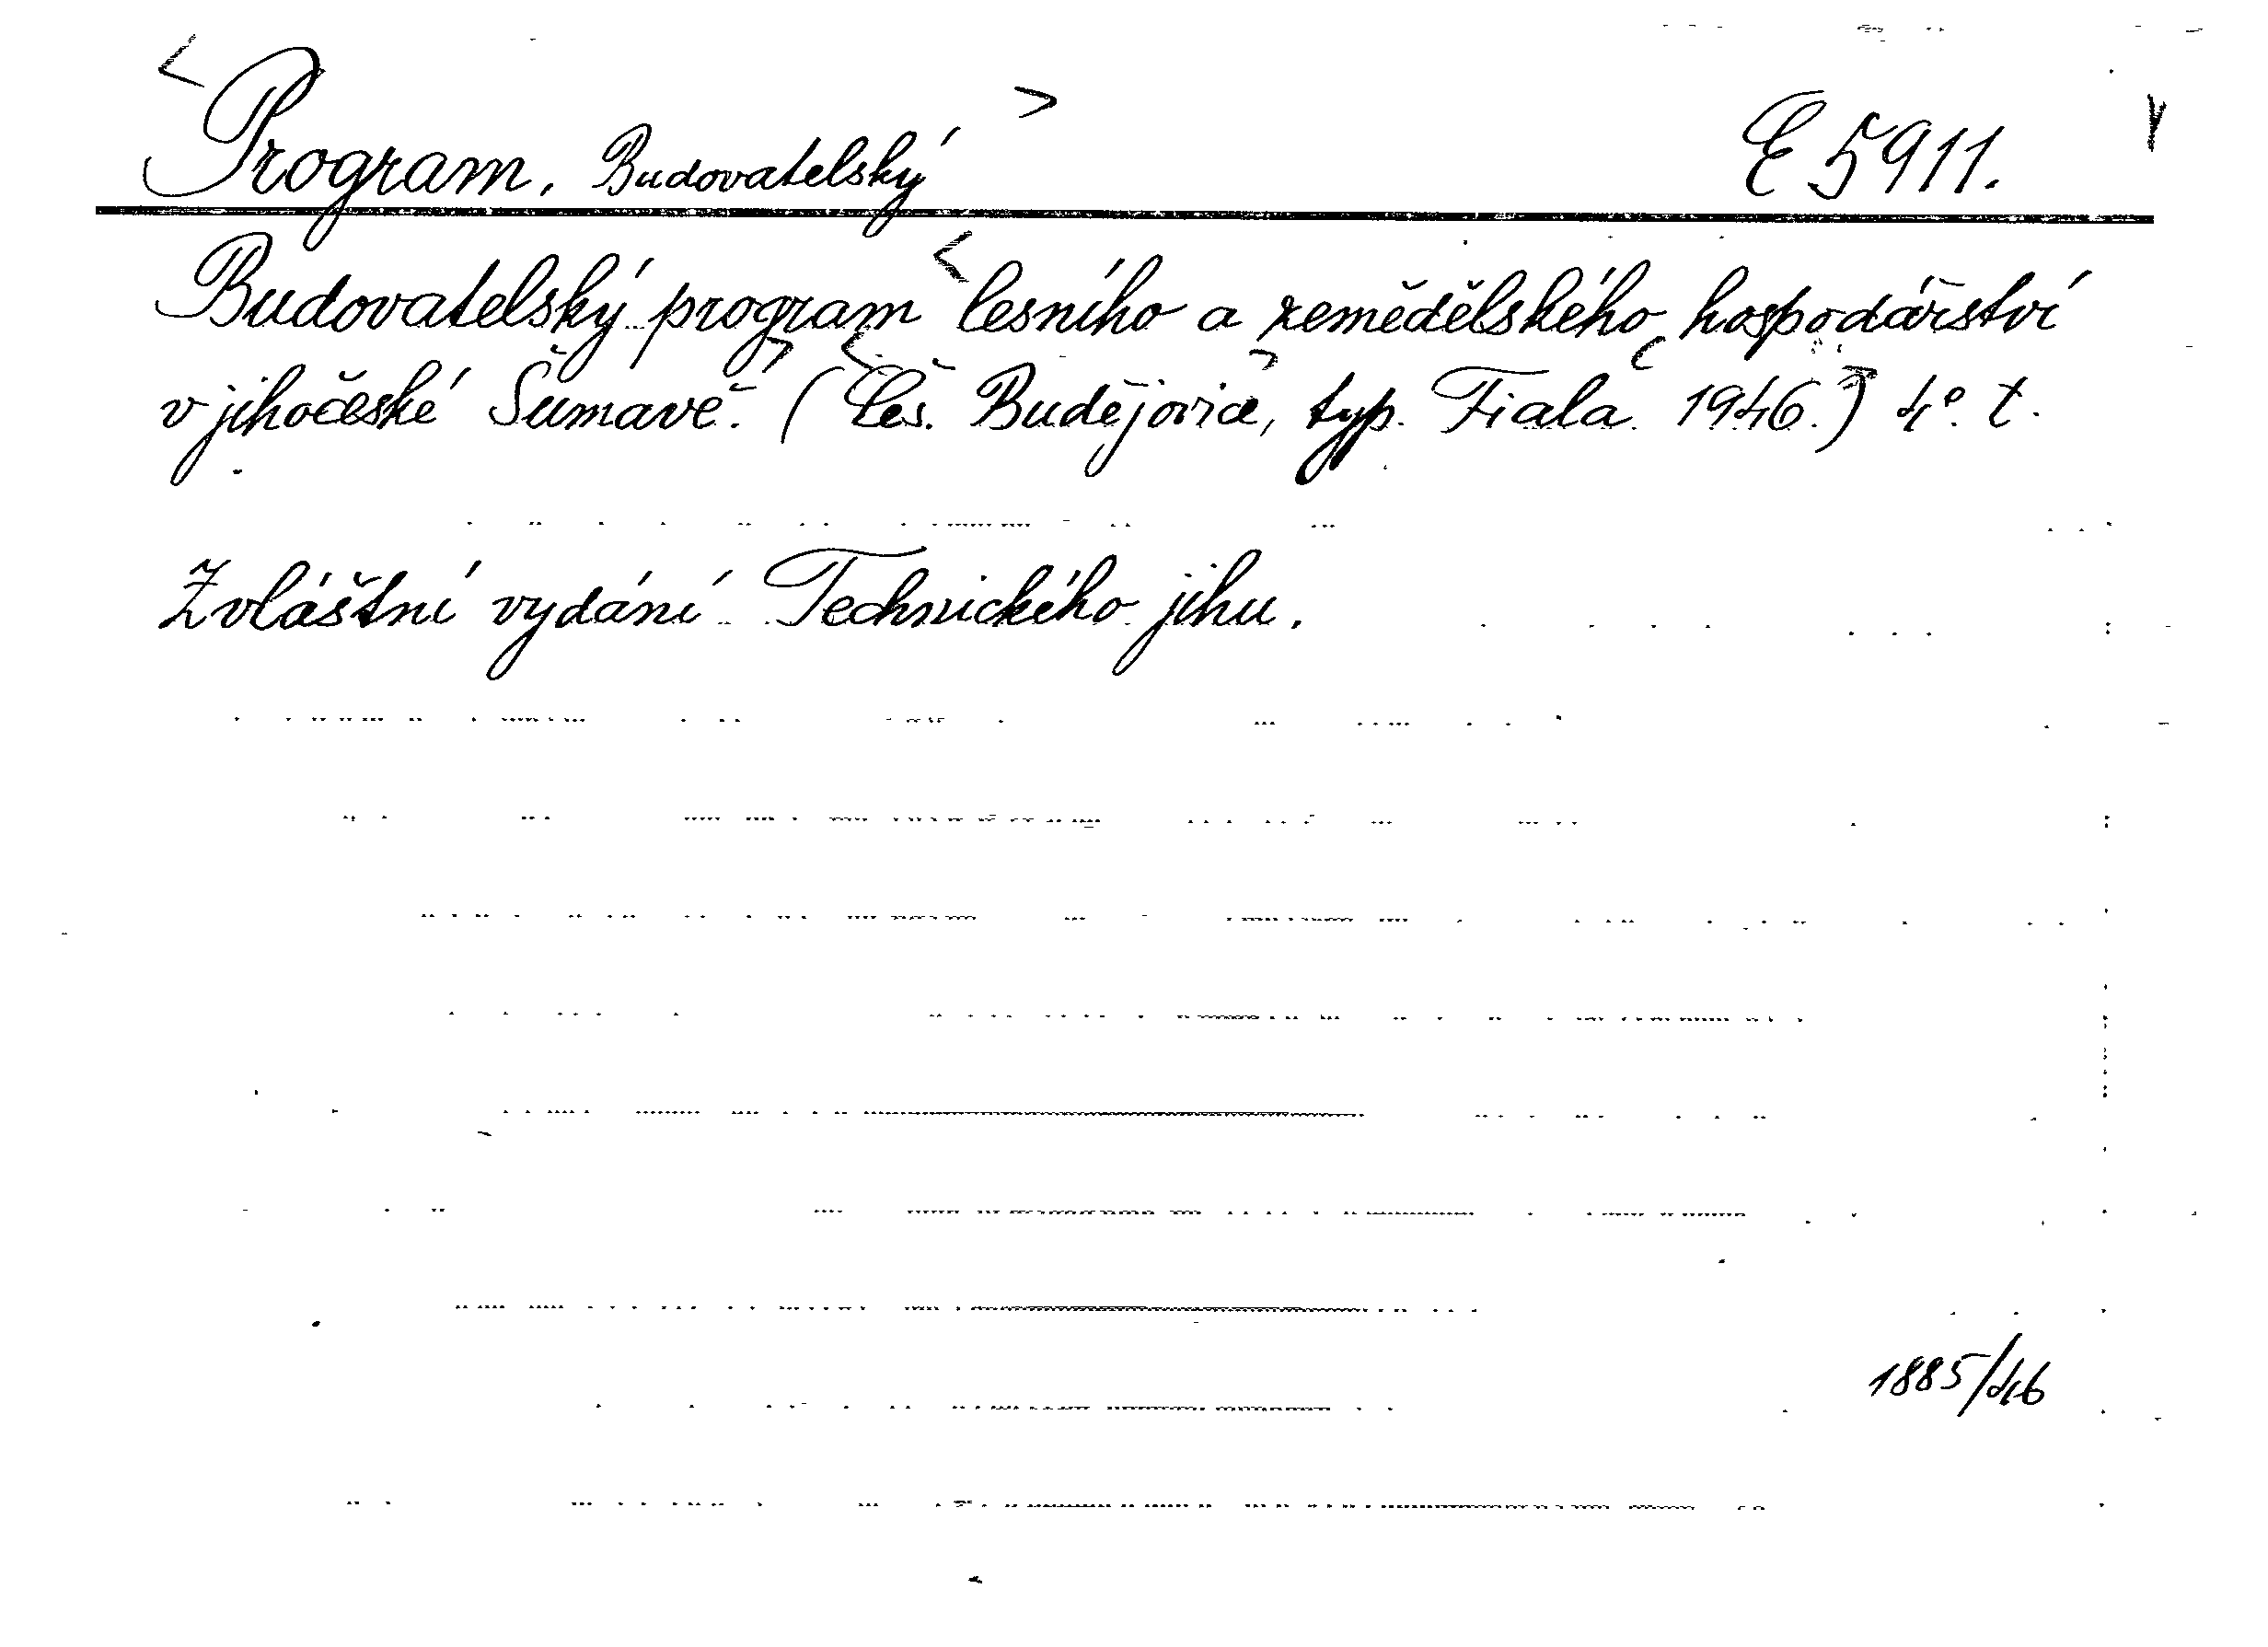 < Program, Budovatelský > E 5911.
Budovatelský program < lesního a zemědělského hospodářství
v jihočeské Šumavě. > ( < Čes. Budějovice >, typ. Fiala < 1946. > ) 4°. t.
Zvláštní vydání Technického jihu.
1885/46